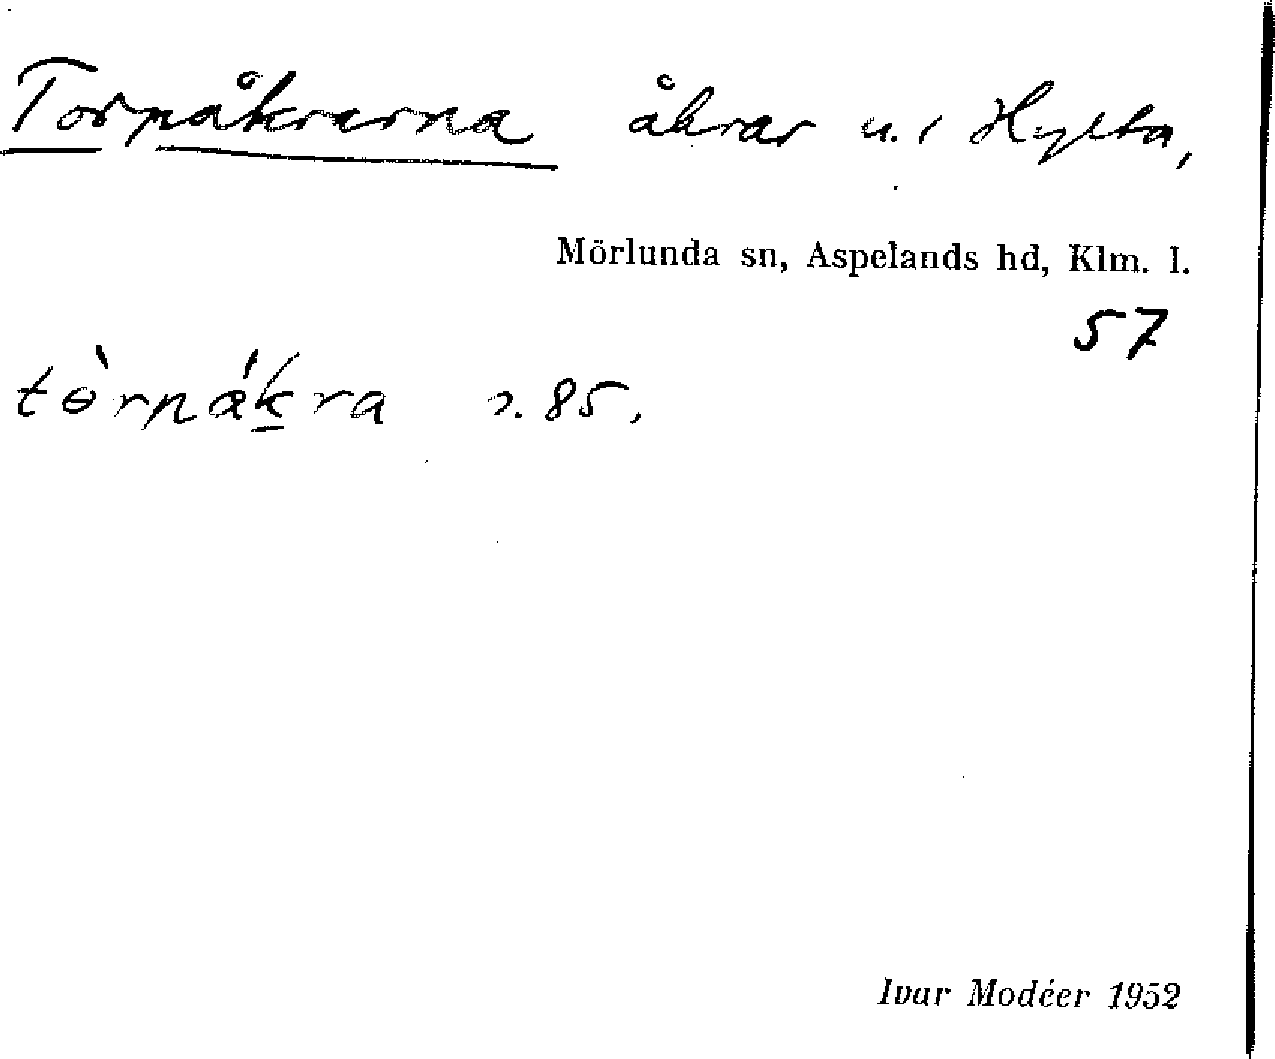 Torpåkrarna åkrar u. Hylta,
Mörlunda sn, Aspelands hd, Klm. l.
57
tɵ̀rpák̠ra 85.
Ivar Modéer 1952